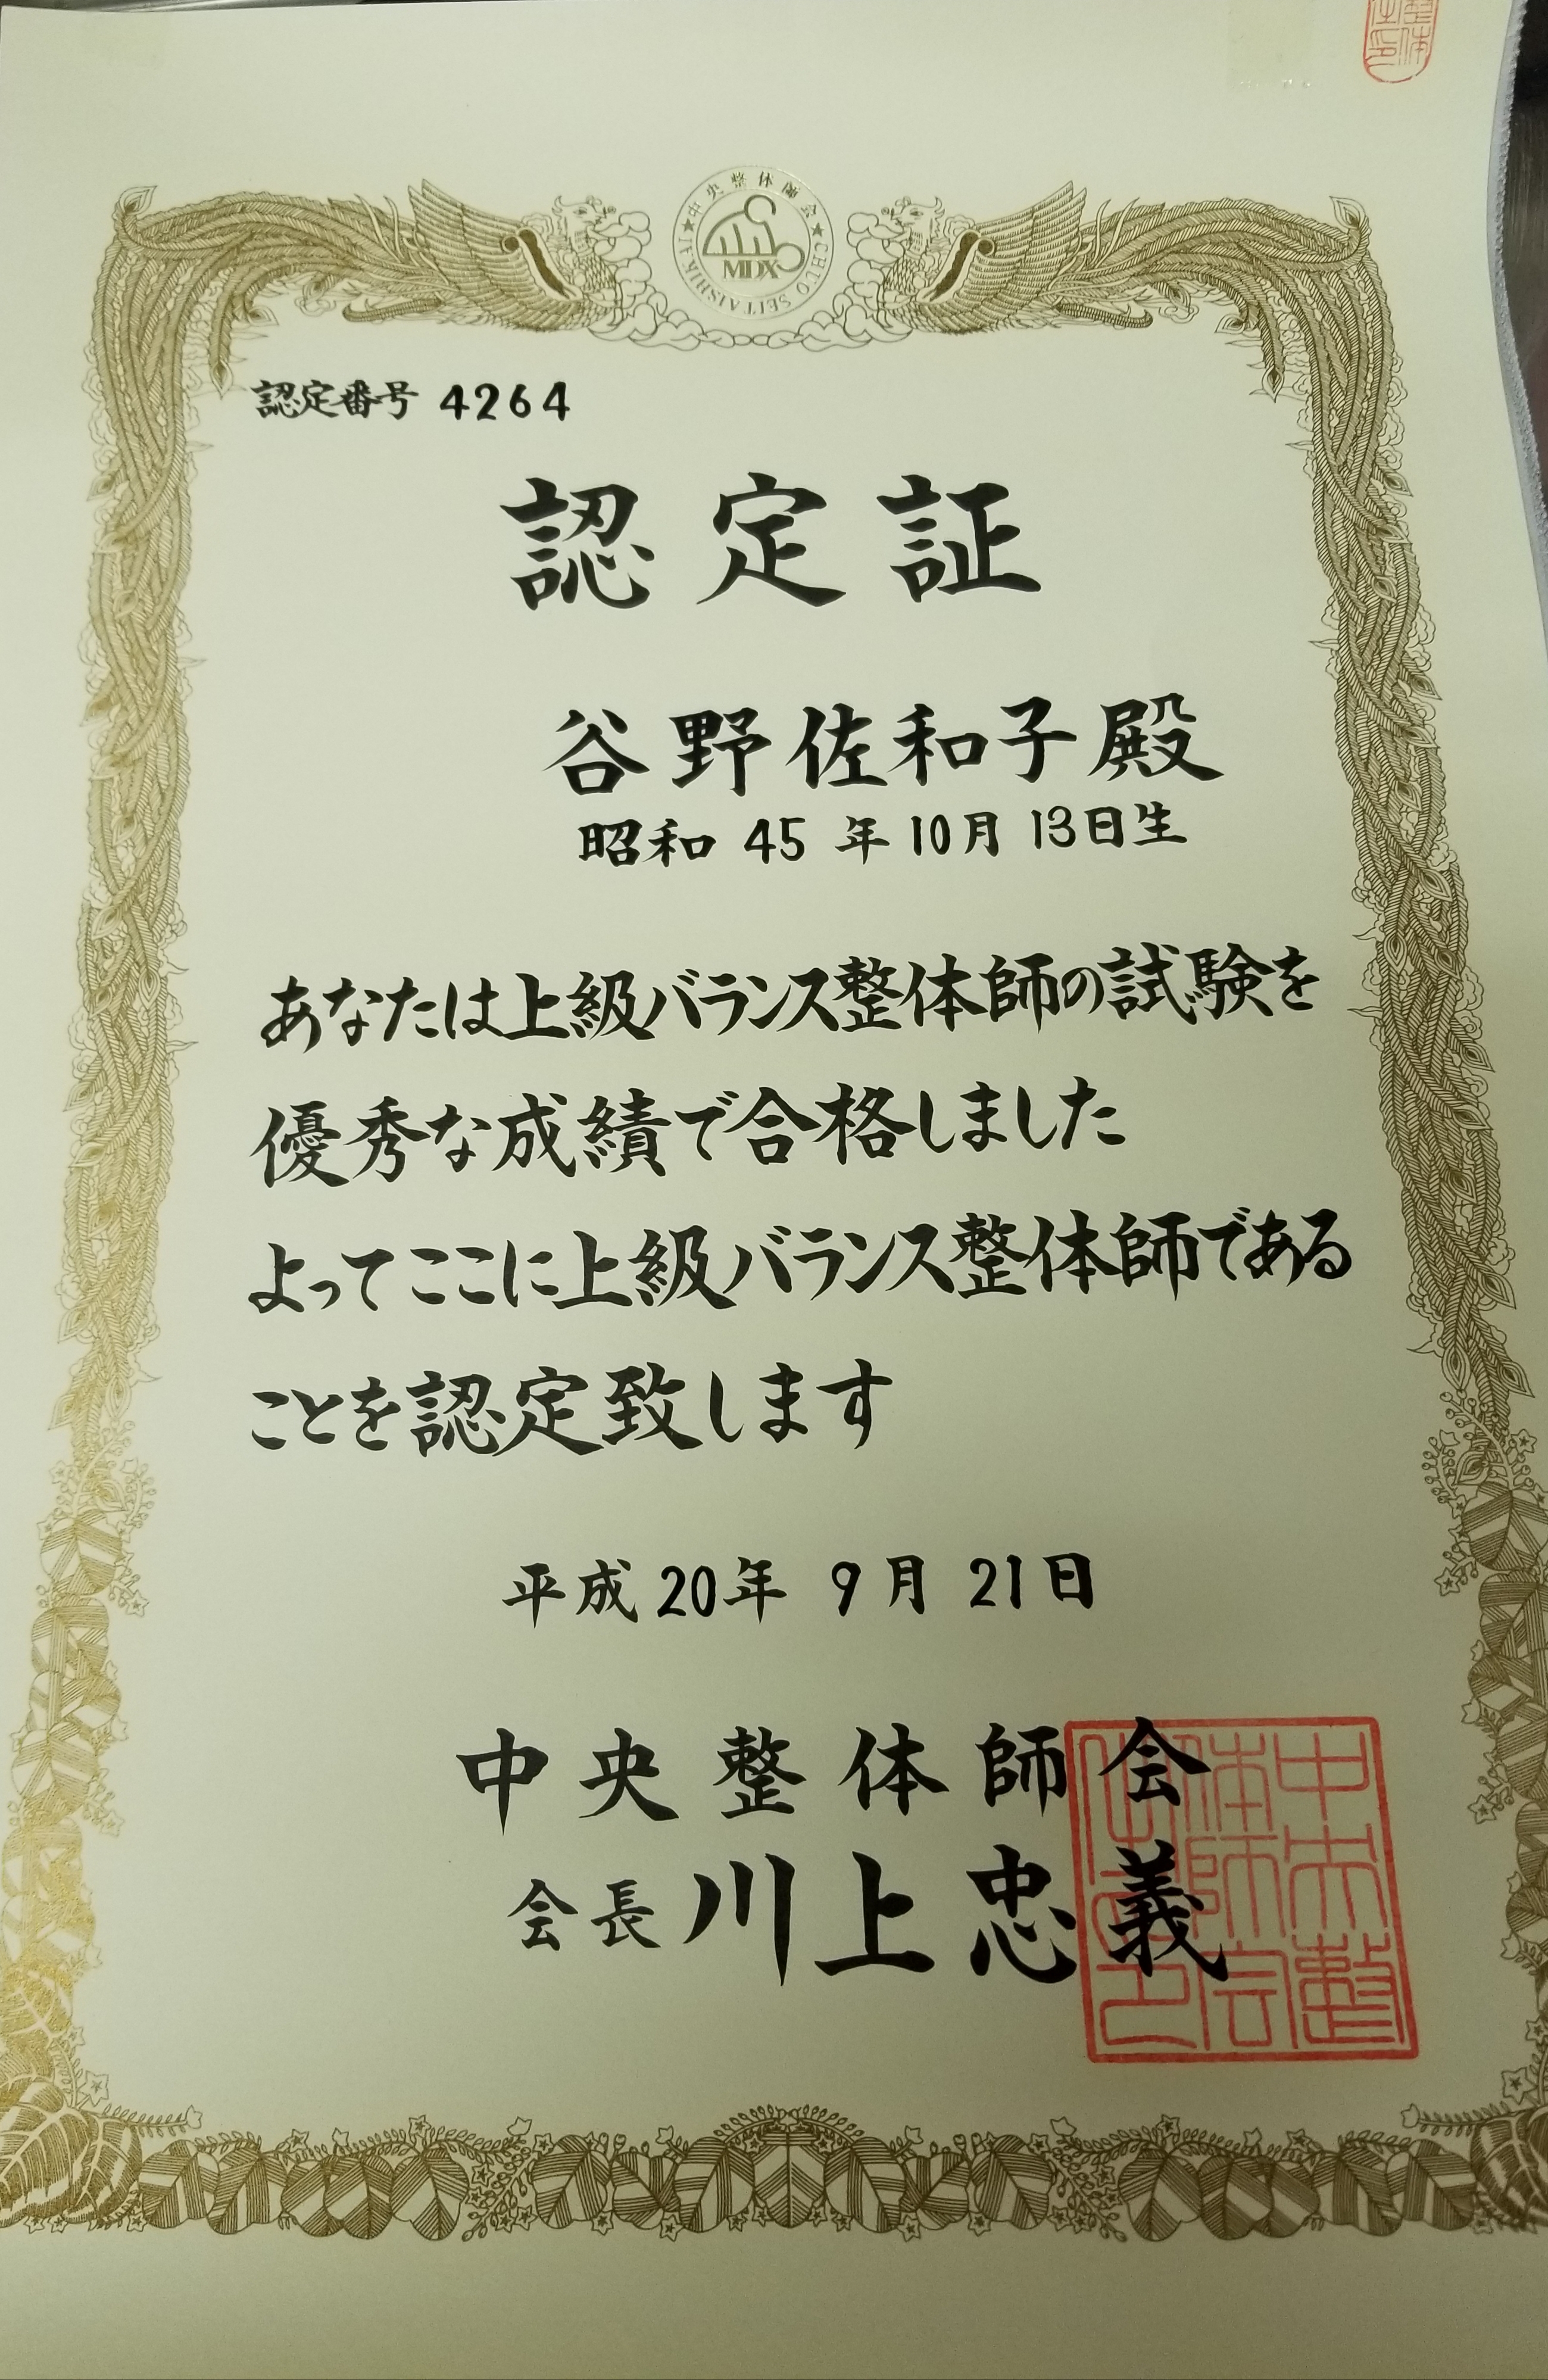 中央整体師会
CHUO SEITAISHIKAI
MDX
認定番号 4264
認定証
谷野佐和子殿
昭和 45 年 10月 13日生
あなたは上級バランス整体師の試験を
優秀な成績で合格しました
よってここに上級バランス整体師である
ことを認定致します
平成 20年 9月 21日
中央整体師会
会長 川上忠義
中央整
体師会